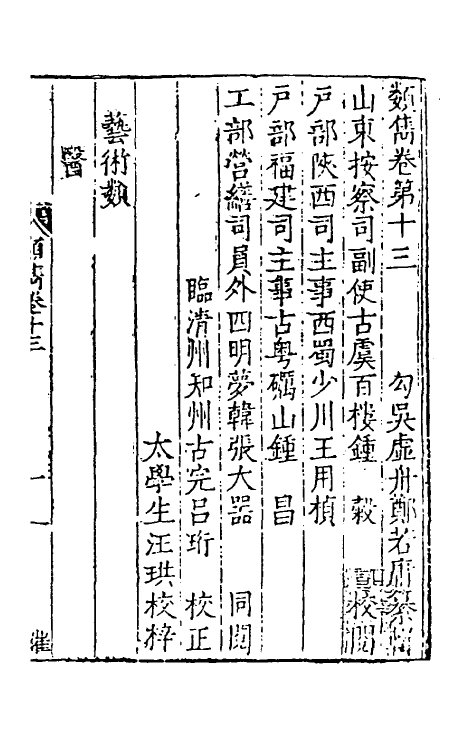 類雋卷第十三 勾吳虛舟鄭若庸
山東按察司副使古虞百樓鍾 穀 校閱
戶部陝西司主事西蜀少川王用楨
戶部福建司主事古粵礪山鍾 昌
工部營繕司員外四明夢韓張大器 同閱
臨清州知州古完呂珩 校正
太學生汪珙校梓
藝術類
醫
類雋卷十三 一